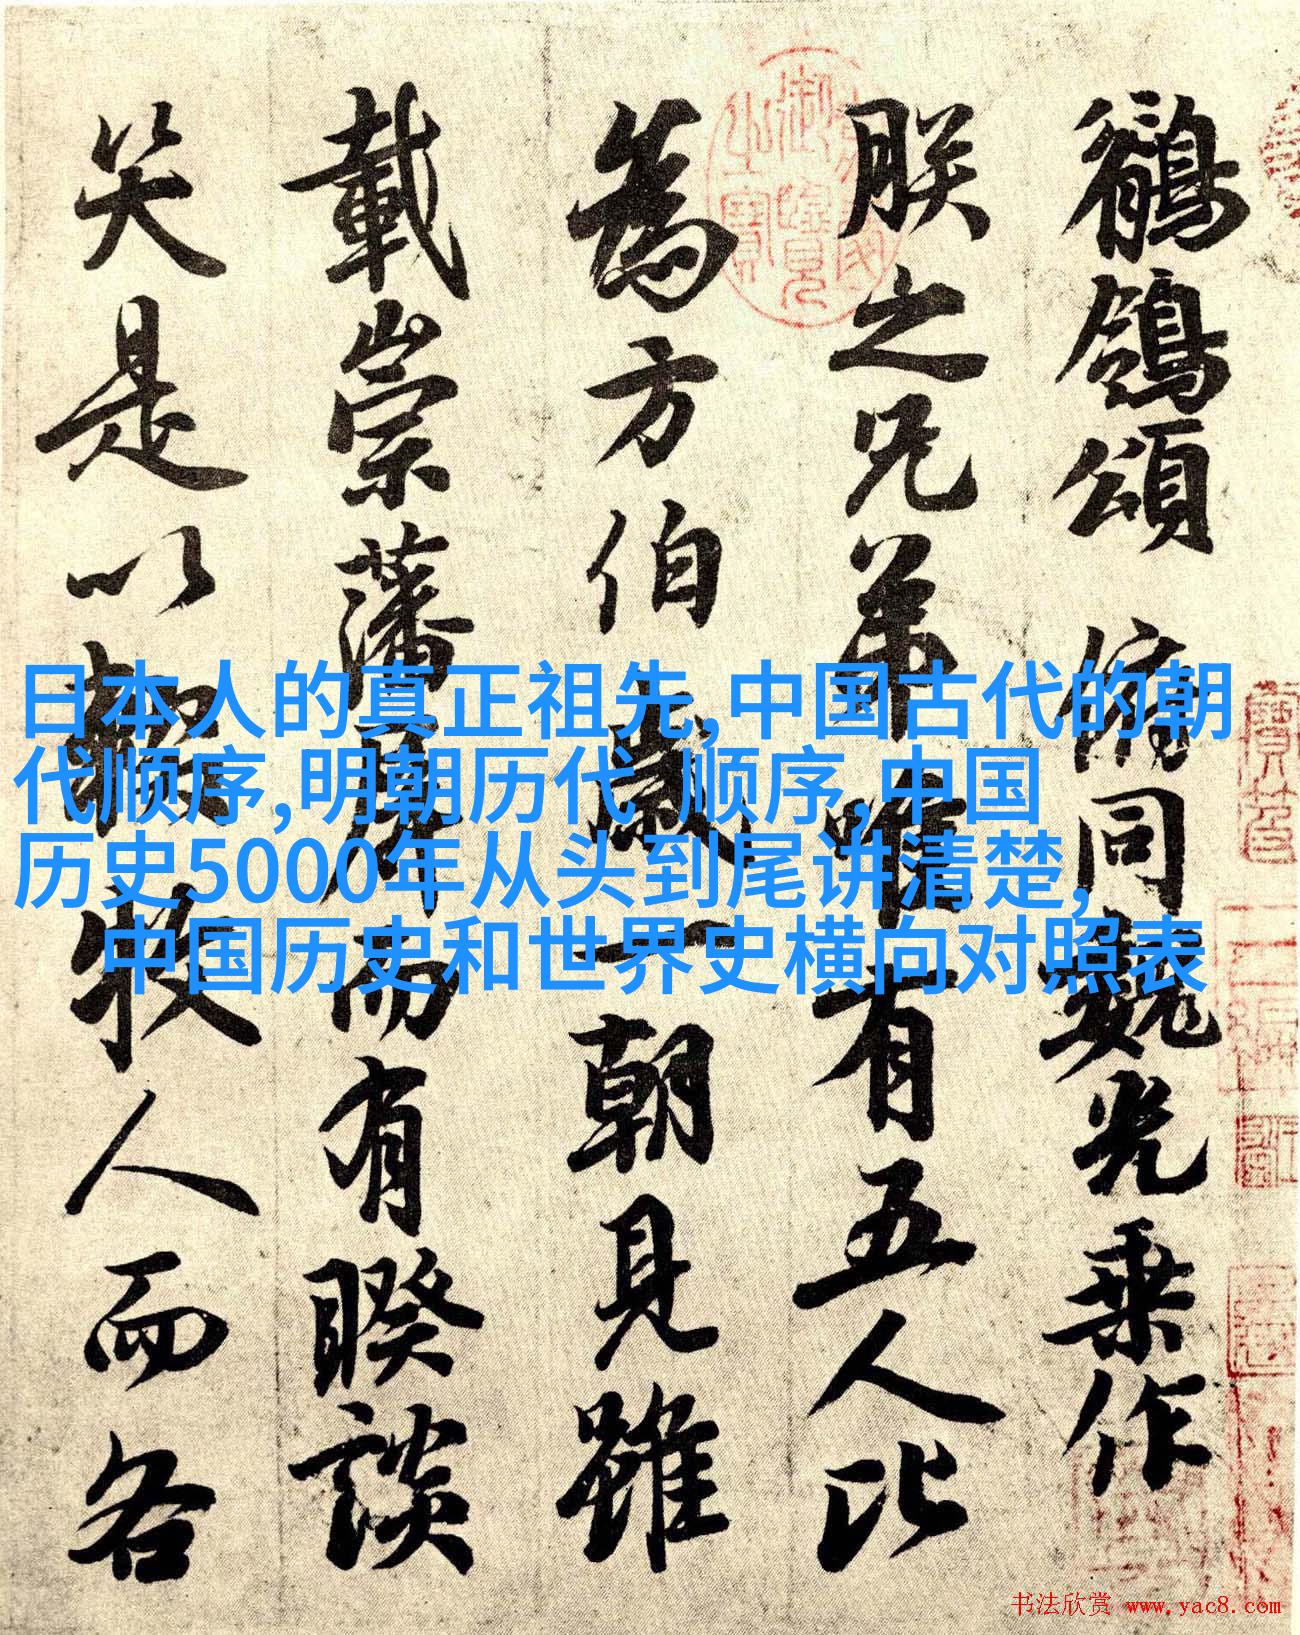 鶺鴒頌 俯同魏光乘作
朕之兄弟唯有五人比
為方伯歲一朝見雖
載崇藩屏而有睽談
笑是以輟牧人而各
日本人的真正祖先,中国古代的朝
代顺序,明朝历代 顺序,中国
历史5000年从头到尾讲清楚,
中国历史和世界史横向对照表
书法欣赏 www.yac8.com